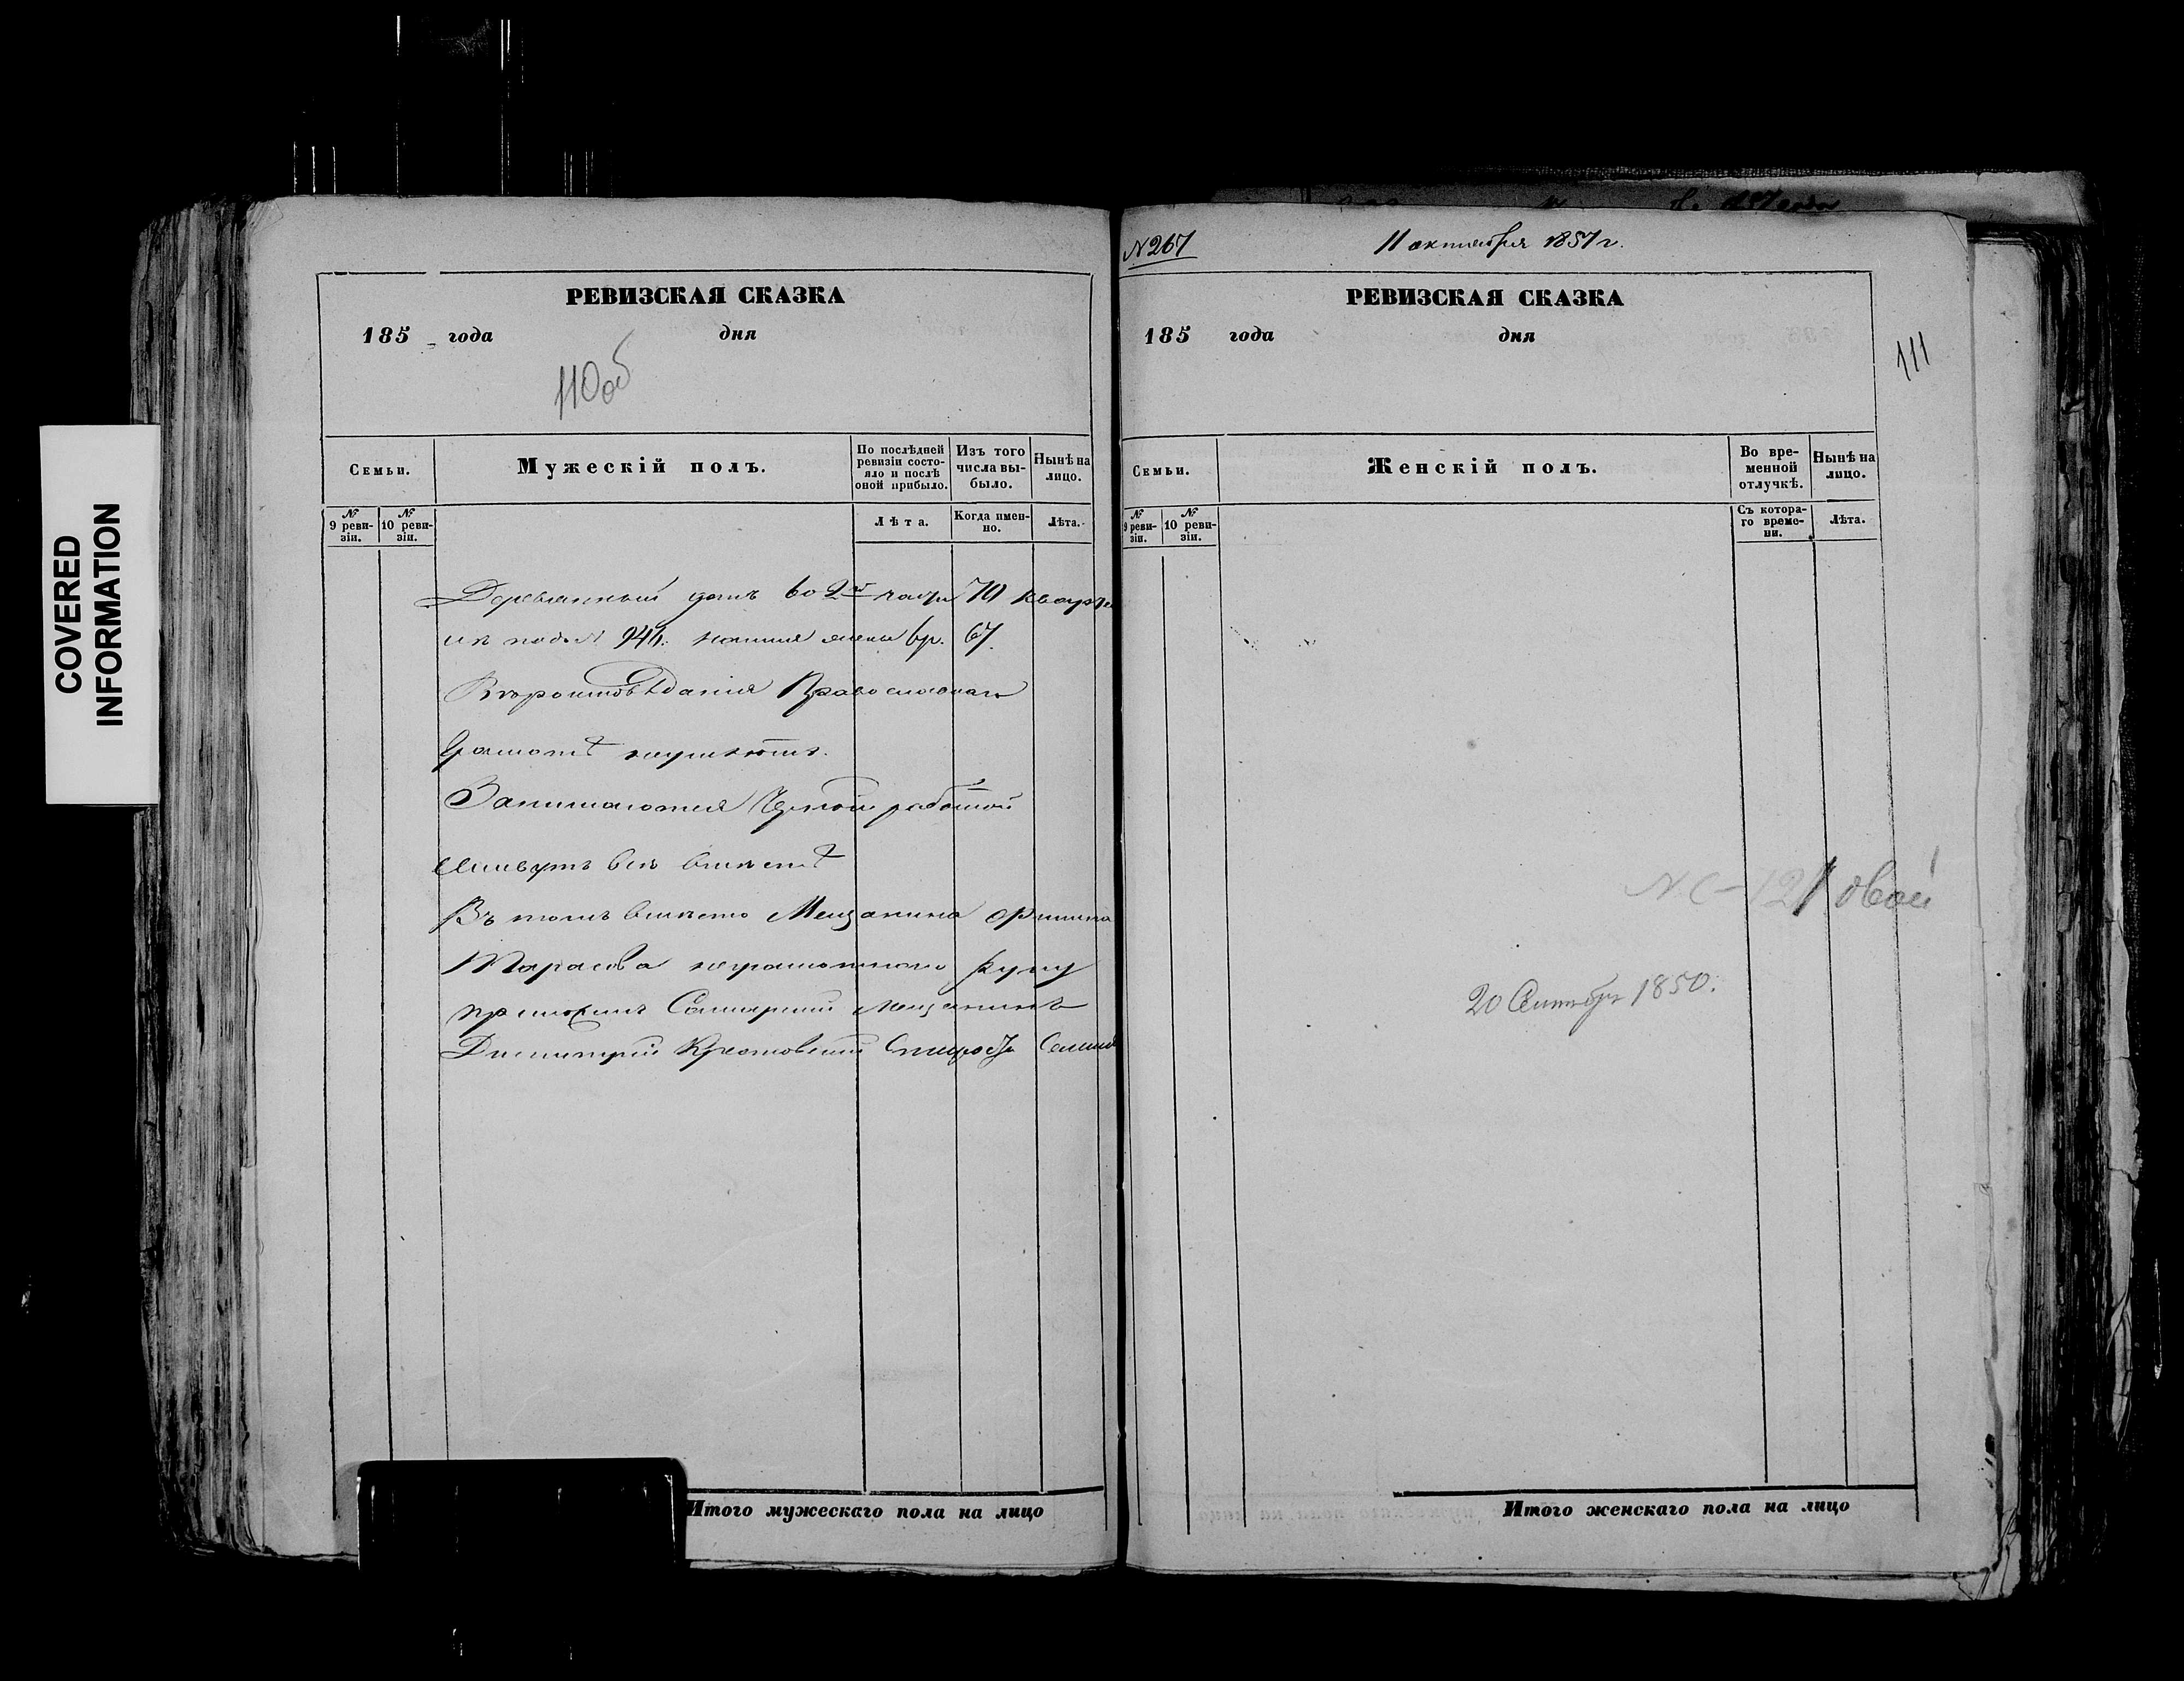 COVERED
INFORMATION
РЕВИЗСКАЯ СКАЗКА
185 года дня
110об
Семьи.
Мужескій полъ.
По послѣдней ревизіи состояло и послѣ оной прибыло.
Изъ того числа выбыло.
Нынѣ на лицо.
№ 9 ревизіи.
№ 10 ревизіи.
Лѣта.
Когда именно.
Лѣта.
Деревянный домъ во 2й части 70 квар
подъ № 944. 67.
Вѣроисповѣданія Православнаго
Грамотѣ неумѣютъ.
Занимаются Черной работой
Живутъ всѣ вмѣстѣ
Въ томъ вмѣсто Мещанина
Тарасова неграмотнаго руку
приложилъ Самарский Мещанинъ
Дмитрий
N 267
11 октября 1857 г.
РЕВИЗСКАЯ СКАЗКА
185 года дня
111
Семьи.
Женскій полъ.
Во временной отлучкѣ.
Нынѣ на лицо.
№ 9 ревизіи.
№ 10 ревизіи.
Съ котораго времени.
Лѣта.
20 Сентябр 1850.
Итого мужескаго пола на лицо
Итого женскаго пола на лицо